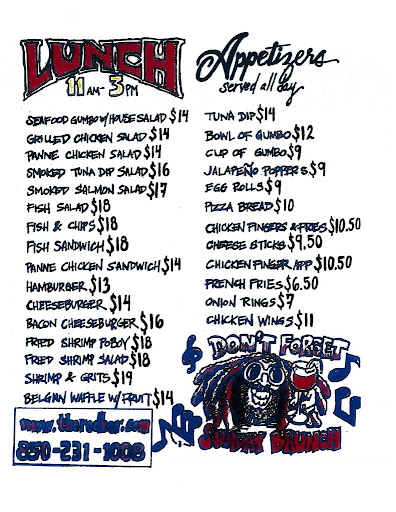 LUNCH
11 AM- 3 PM
SEAFOOD GUMBO W/ HOUSE SALAD $14
GRILLED CHICKEN SALAD $14
PANNE CHICKEN SALAD $14
SMOKED TUNA DIP SALAD $16
SMOKED SALMON SALAD $17
FISH SALAD $18
FISH & CHIPS $18
FISH SANDWICH $18
PANNE CHICKEN SANDWICH $14
HAMBURGER $13
CHEESEBURGER $14
BACON CHEESEBURGER $16
FRIED SHRIMP POBOY $18
FRIED SHRIMP SALAD $18
SHRIMP & GRITS $19
BELGIAN WAFFLE W/ FRUIT $14
www.theredbar.com
850-231-1008
Appetizers
served all day
TUNA DIP $14
BOWL OF GUMBO $12
CUP OF GUMBO $9
JALAPEÑO POPPERS $9
EGG ROLLS $9
PIZZA BREAD $10
CHICKEN FINGERS & FRIES $10.50
CHEESE STICKS $9.50
CHICKEN FINGER APP $10.50
FRENCH FRIES $6.50
ONION RINGS $7
CHICKEN WINGS $11
DON'T FORGET
SUNDAY BRUNCH